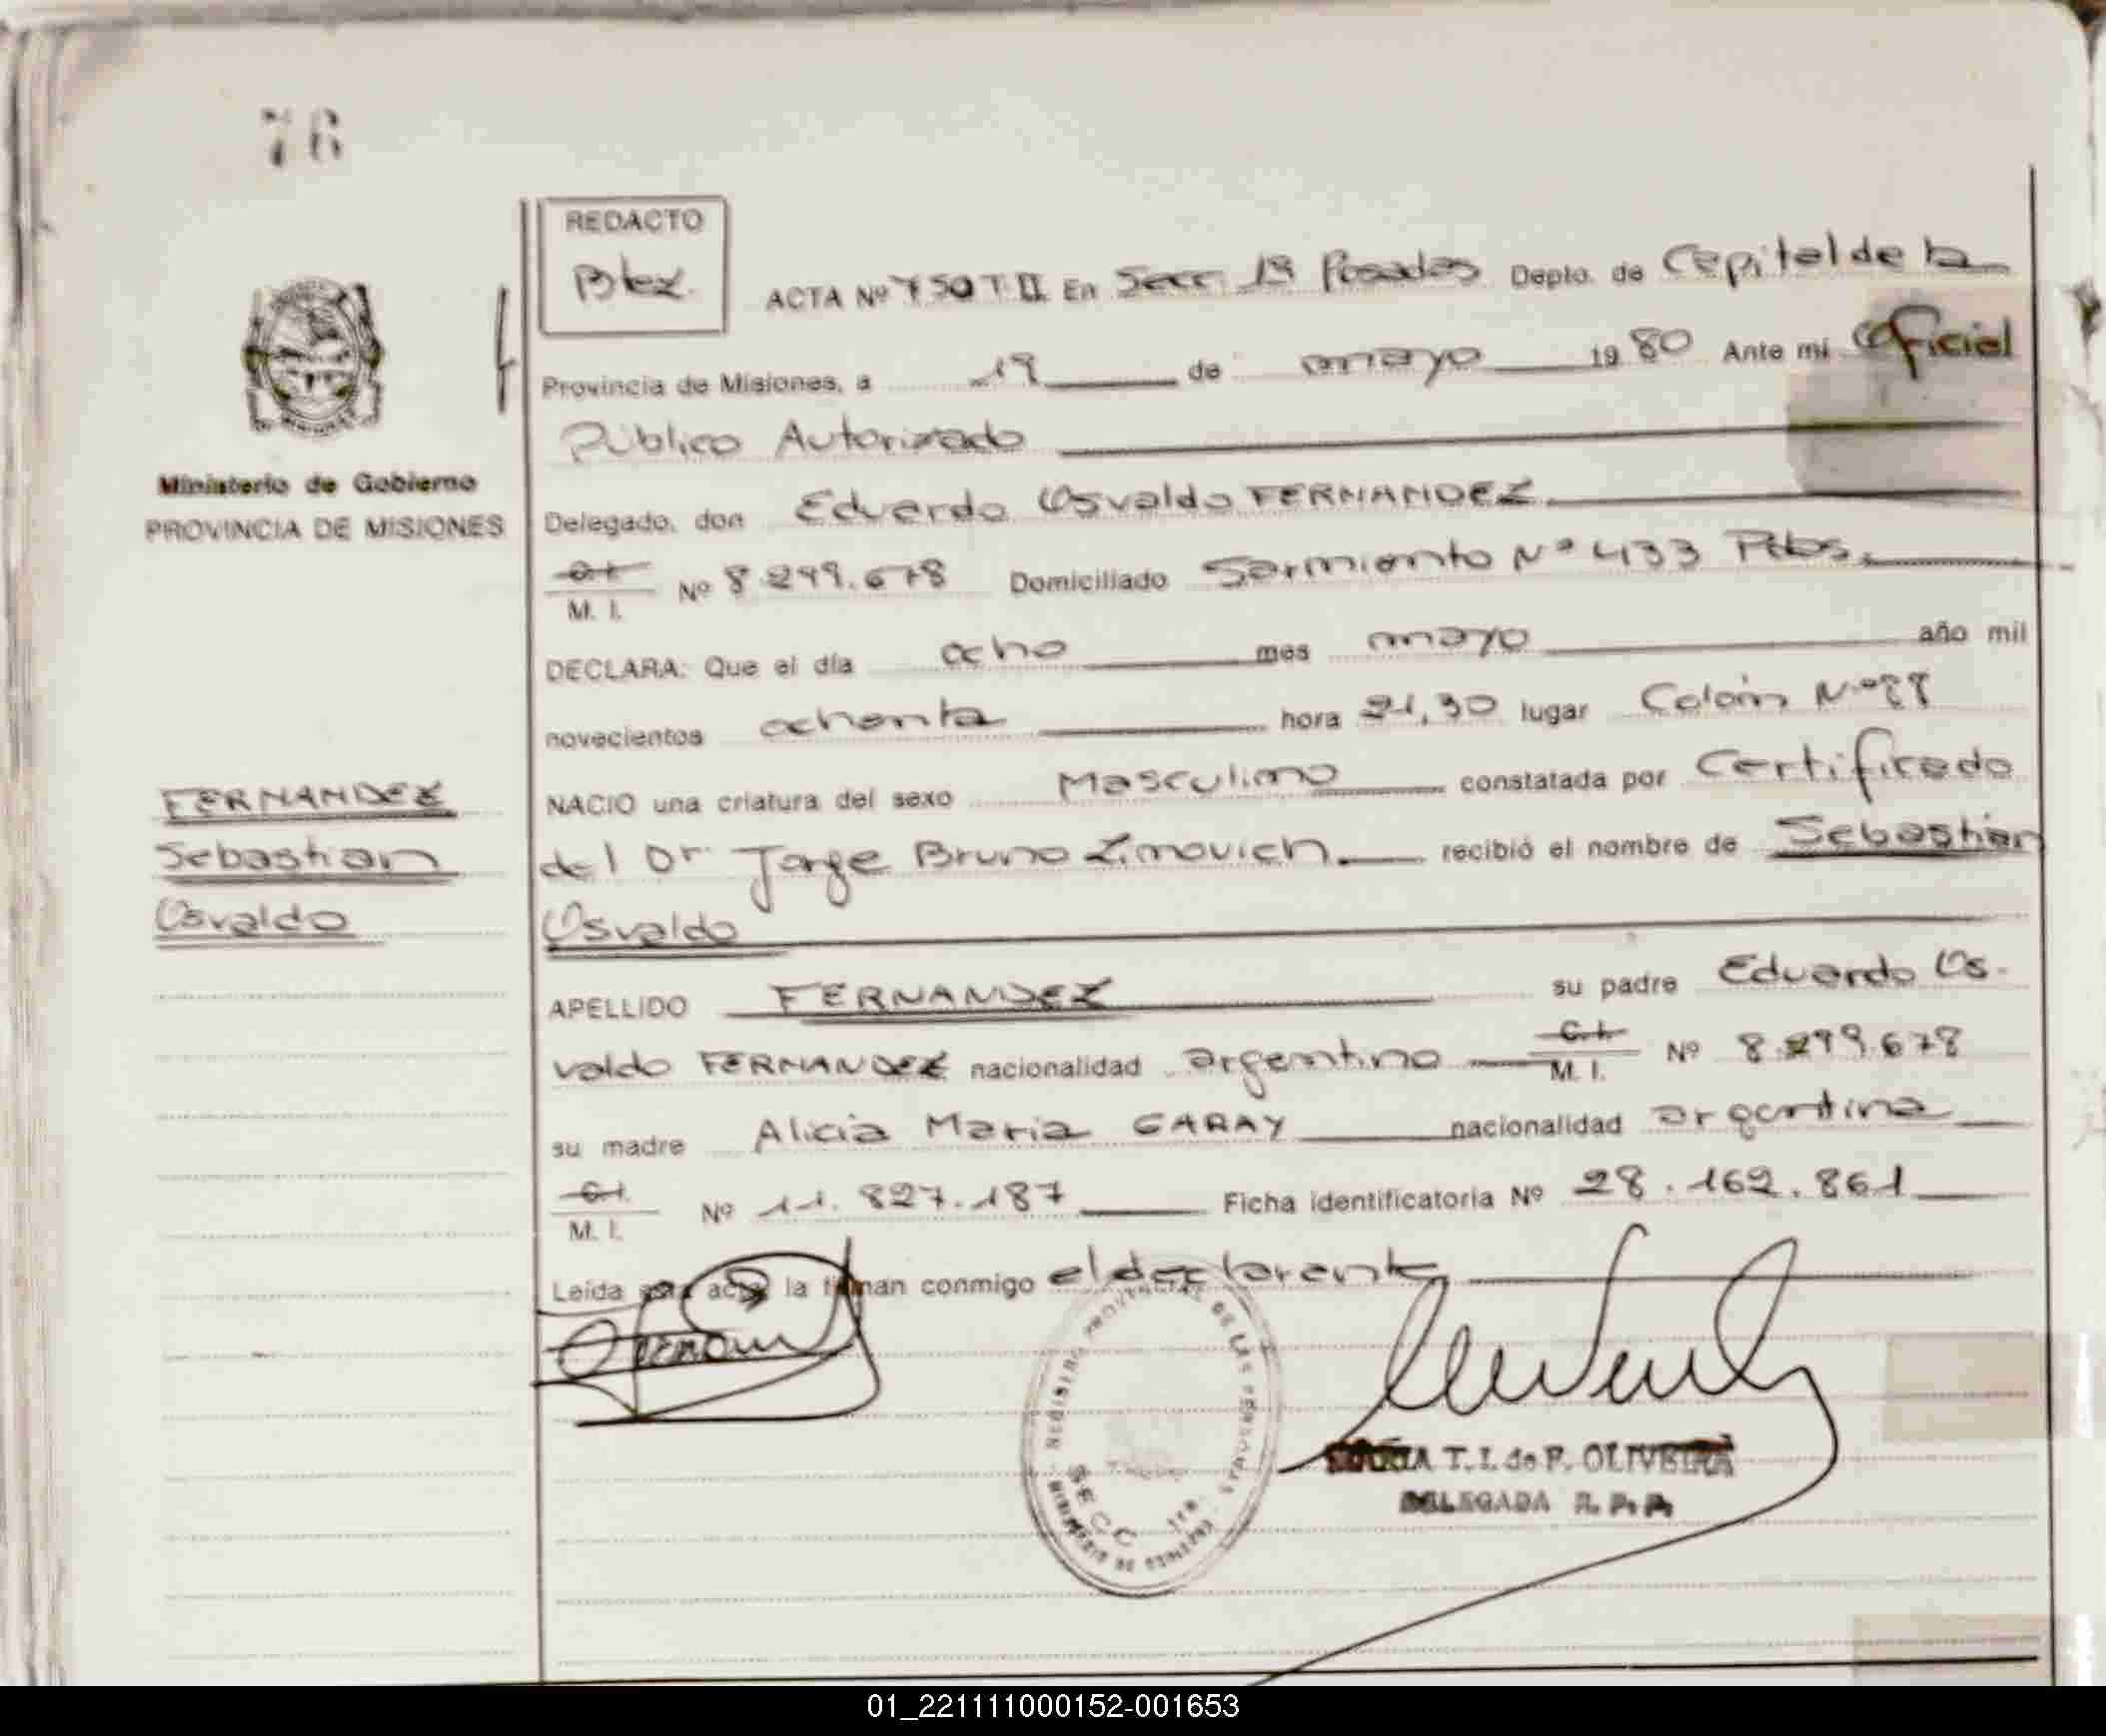 76
REDACTO
Btez.
ACTA Nº 750 T II En Secc. 1ª Posadas Depto. de Capital de la
Provincia de Misiones, a 19 de mayo 1980 Ante mi Oficial
Público Autorizado
Ministerio de Gobierno
PROVINCIA DE MISIONES
Delegado, don Eduardo Osvaldo FERNANDEZ.
C.I. M. I. Nº 8.299.678 Domiciliado Sarmiento Nº 433 Pdas.
DECLARA: Que el día ocho mes mayo año mil
novecientos ochenta hora 21,30 lugar Colón Nº 88
NACIO una criatura del sexo Masculino constatada por Certificado
del Dr. Jorge Bruno Zimovich. recibió el nombre de Sebastian
Osvaldo
FERNANDEZ
Sebastian
Osvaldo
APELLIDO FERNANDEZ su padre Eduardo Os-
valdo FERNANDEZ nacionalidad argentino C.I. M. I. Nº 8.299.678
su madre Alicia Maria GARAY nacionalidad argentina
C.I. M. I. Nº 11.827.187 Ficha identificatoria Nº 28.162.861
Leída esta acta la firman conmigo el declarante
REGISTRO PROVINCIAL DE LAS PERSONAS
SECC. 1ra.
MINISTERIO DE GOBIERNO
T. I. de F. OLIVEIRA
DELEGADA R. P. P.
01_221111000152-001653